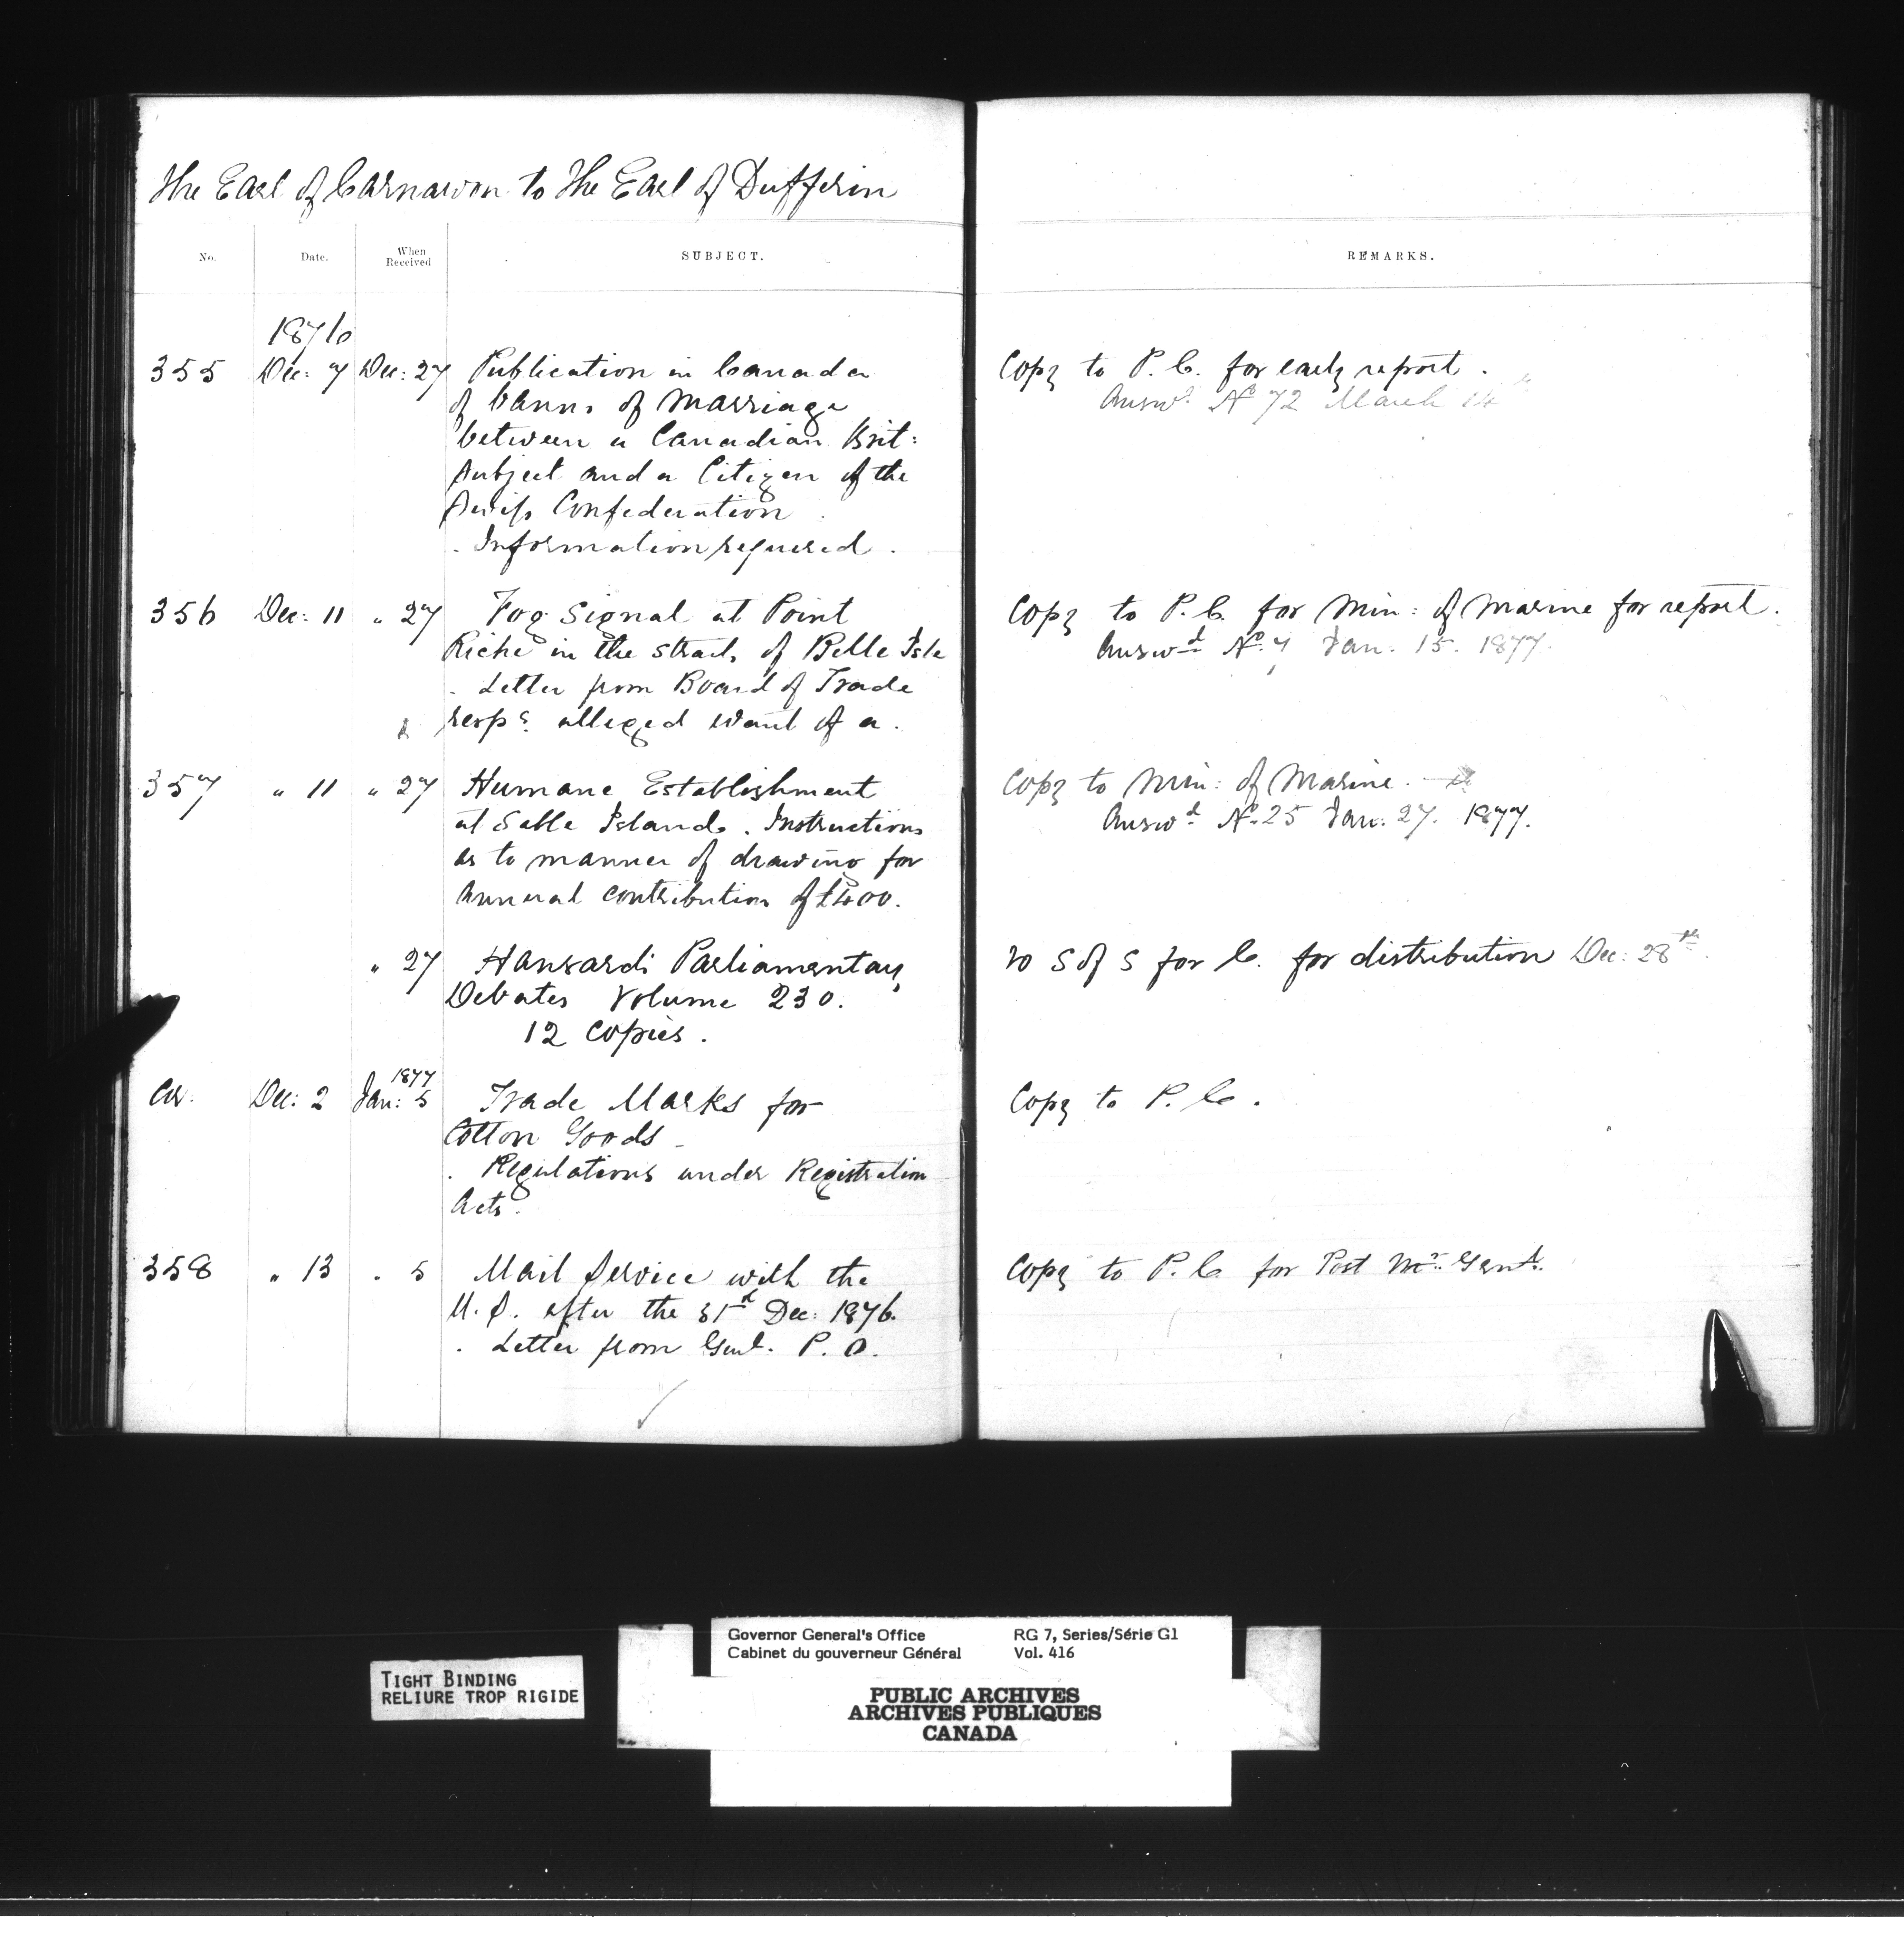 The Earl of Carnarvon to The Earl of Dufferin
No. Date. When Received SUBJECT. REMARKS.
1876
355 Dec: 7 Dec: 27 Publication in Canada Copy to P. C. for early report.
of banns of Marriage Answd. No 72 March 14th
between a Canadian Brit:
Subject and a Citizen of the
Swiss Confederation
. Information required.
356 Dec: 11 " 27 Fog Signal at Point Copy to P. C. for Min: of Marine for report.
Riche in the Straits of Belle Isle Answd No. 4, Jan: 15. 1877.
. Letter from Board of Trade
resps. alleged want of a.
357 " 11 " 27 Humane Establishment Copy to Min: of Marine.
at Sable Island. Instructions Answd No. 25 Jan: 27. 1877.
as to manner of drawing for
Annual contribution of £400.
" 27 Hansards Parliamentary to S of S for C. for distribution Dec: 28th.
Debates Volume 230.
12 Copies.
Cir: Dec: 2 1877 Jan: 5 Trade Marks for Copy to P. C.
Cotton Goods
. Regulations under Registration
Acts.
358 " 13 " 5 Mail Service with the Copy to P. C. for Post Mr. Genl.
U. S. after the 31st Dec: 1876.
. Letter from Genl. P. O.
TIGHT BINDING
RELIURE TROP RIGIDE
Governor General's Office RG 7, Series/Série G1
Cabinet du gouverneur Général Vol. 416
PUBLIC ARCHIVES
ARCHIVES PUBLIQUES
CANADA